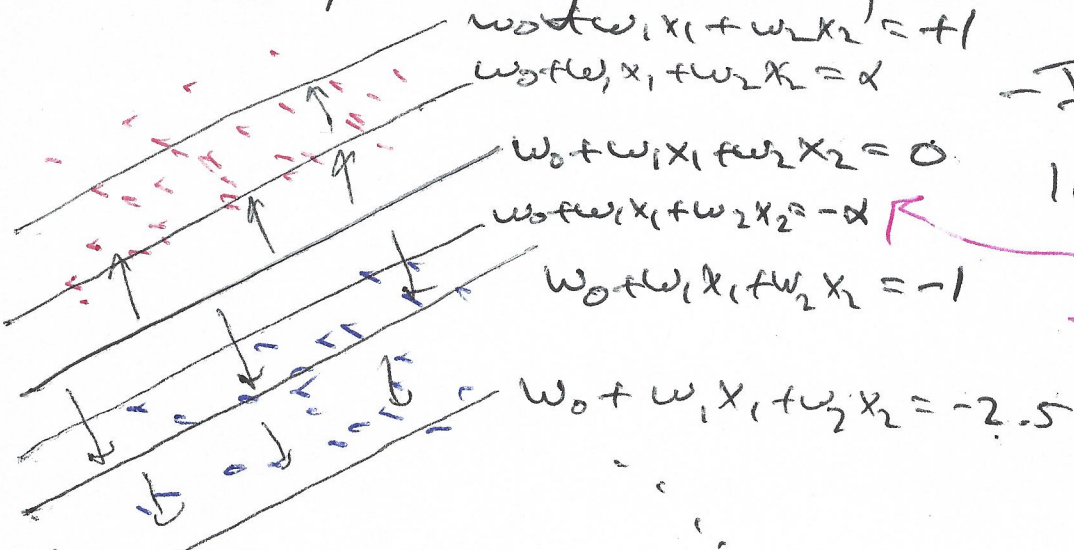 w₀+w₁x₁+w₂x₂=+1
w₀+w₁x₁+w₂x₂=α
w₀+w₁x₁+w₂x₂=0
w₀+w₁x₁+w₂x₂=-α
w₀+w₁x₁+w₂x₂=-1
w₀+w₁x₁+w₂x₂=-2.5